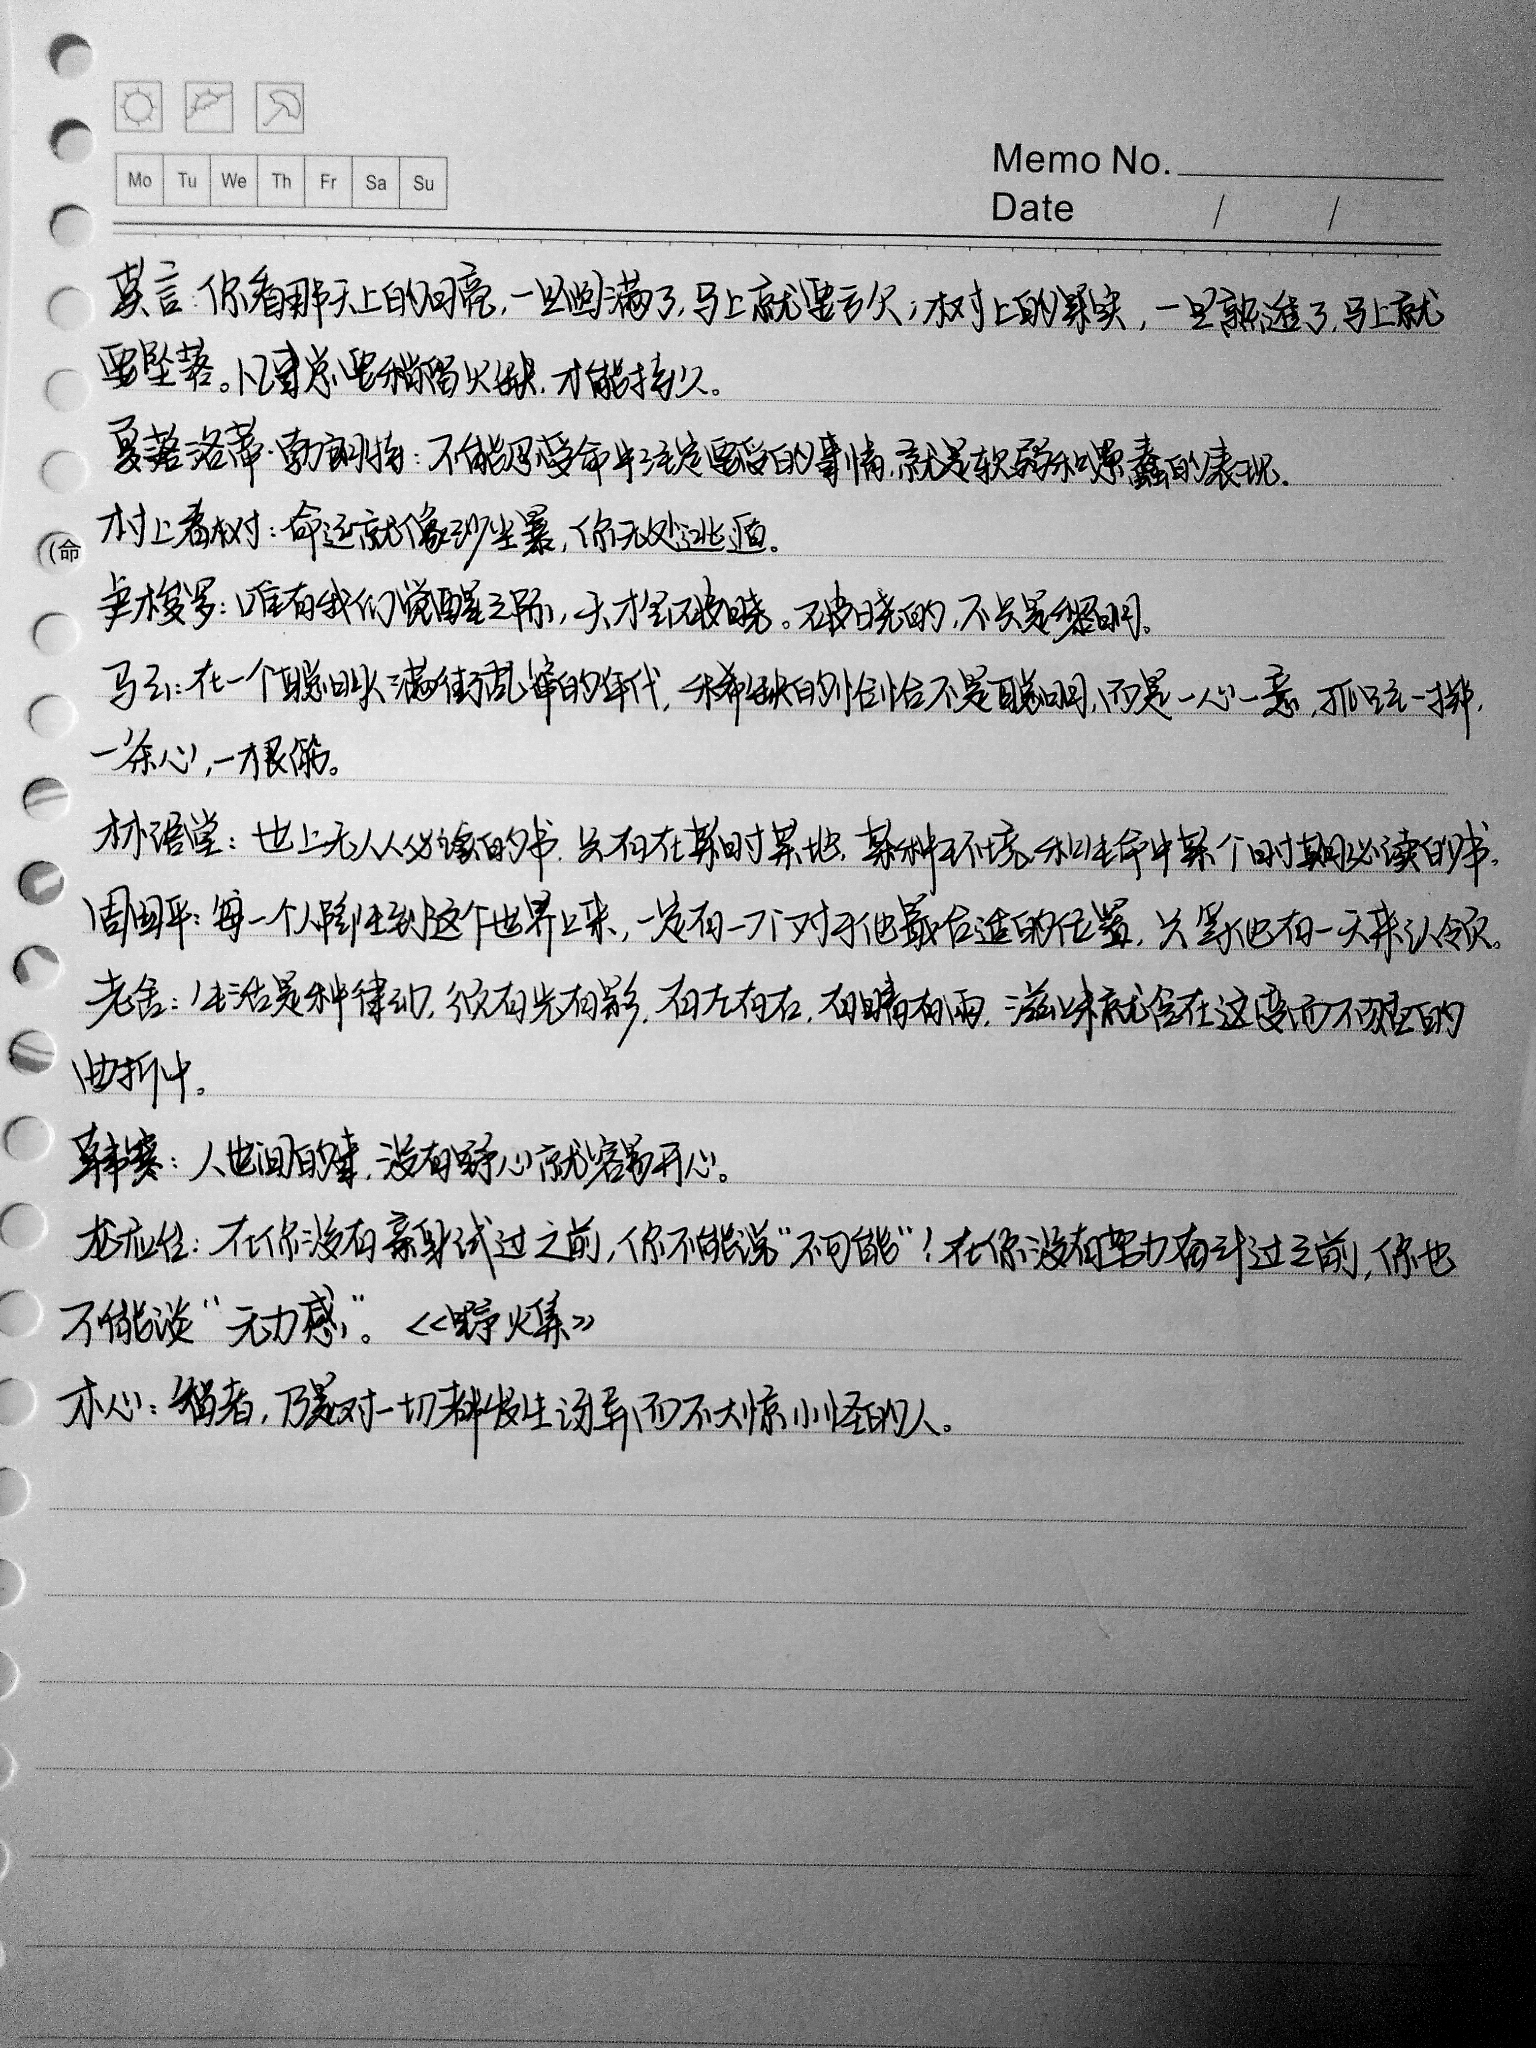 Mo Tu We Th Fr Sa Su
Memo No.
Date / /
莫言:你看那天上的月亮,一旦圆满了,马上就要亏欠;树上的果实,一旦熟透了,马上就
要坠落。凡事总要稍留欠缺,才能持久。
夏落洛蒂·勃朗特:不能忍受命中注定要受的事情,就是软弱和愚蠢的表现.
村上春树:命运就像沙尘暴,你无处逃遁。
(命
卢梭罗:唯有我们觉醒之际,天才会破晓。破晓的,不只是黎明。
马云:在一个聪明人满街乱窜的年代,稀缺的恰恰不是聪明,而是一心一意,孤注一掷,
一条心,一根筋。
林语堂:世上无人人必读的书,只有在某时某地,某种环境,和生命中某个时期必读的书.
周国平:每一个人降生到这个世界上来,一定有一个对于他最合适的位置,只等他有一天来认领。
老舍:生活是种律动,须有光有影,有左有右,有晴有雨,滋味就含在这变而不猛的
曲折中。
韩寒:人世间的事,没有野心就容易开心。
龙应台:在你没有亲身试过之前,你不能说“不可能”!在你没有努力奋斗过之前,你也
不能谈“无力感”。《野火集》
木心:智者,乃是对一切都发生讶异而不大惊小怪的人。